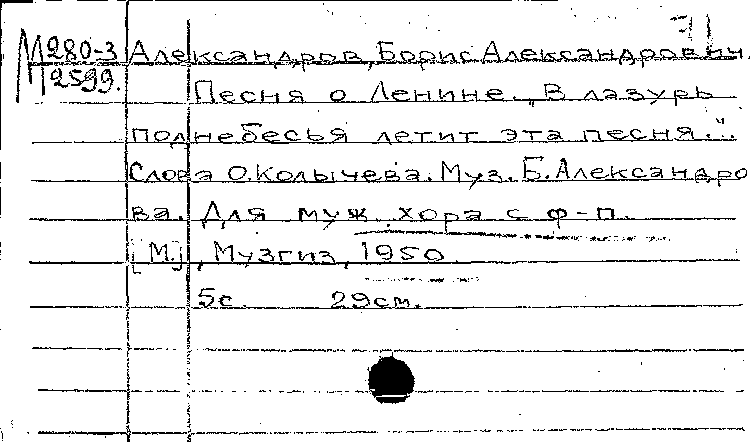 71
М 280-3 Александров, Борис Александрович.
2599.
Песня о Ленине. „В лазурь
поднебесья летит эта песня..."
Слова О. Колычева. Муз. Б. Александро
ва. Для муж. хора с ф-п.
[М.], Музгиз, 1950.
5с. 29см.